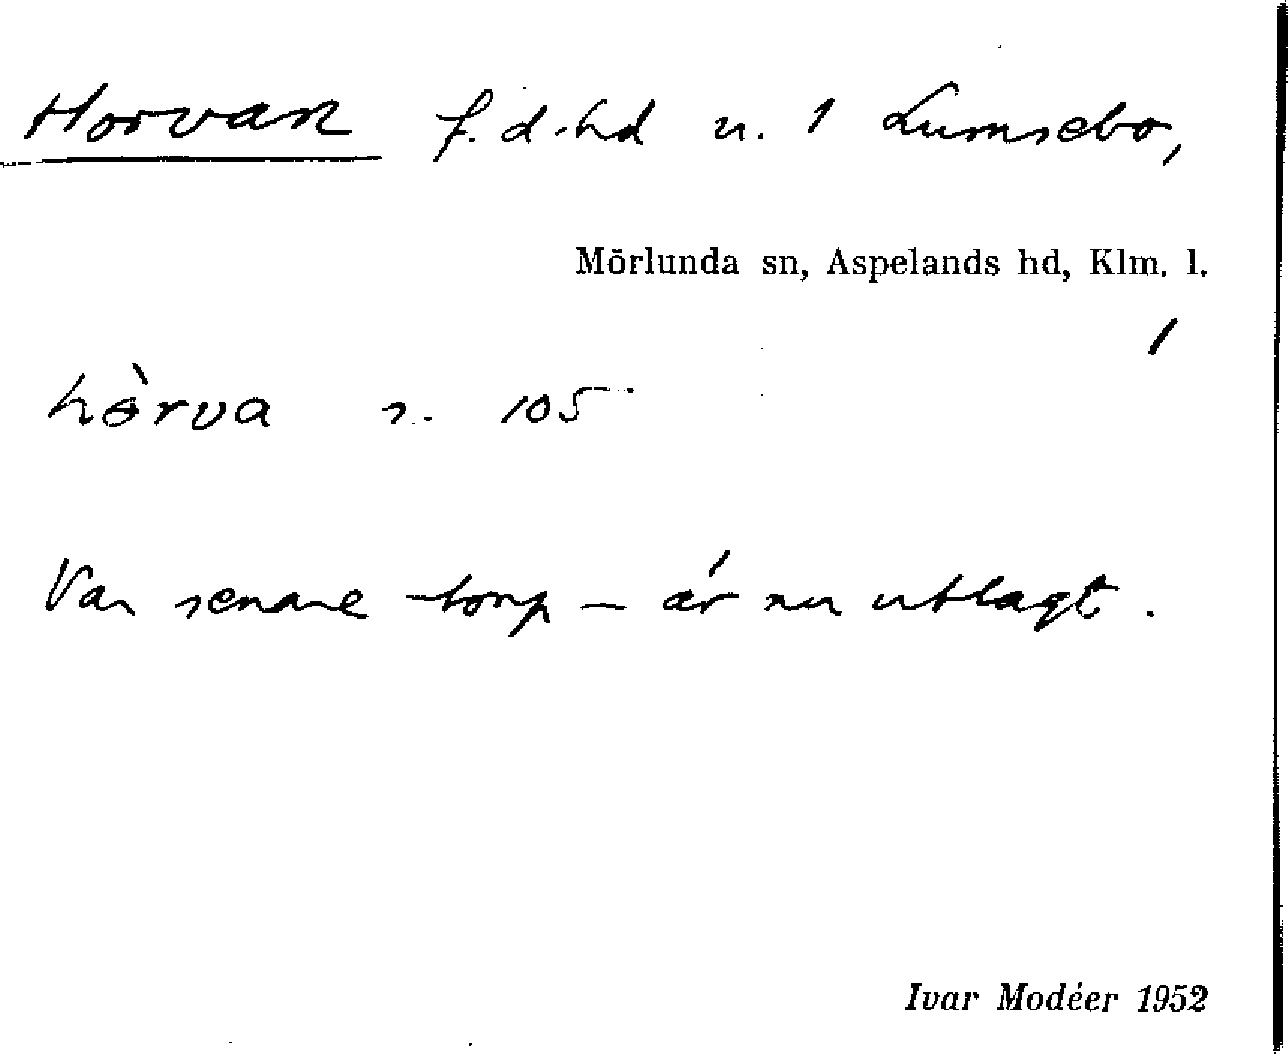 Horvan f.d. hd u. 1 Lumsebo,
Mörlunda sn, Aspelands hd, Klm. l.
hòrva s. 105
Var senare torp – är nu utlagt.
Ivar Modéer 1952